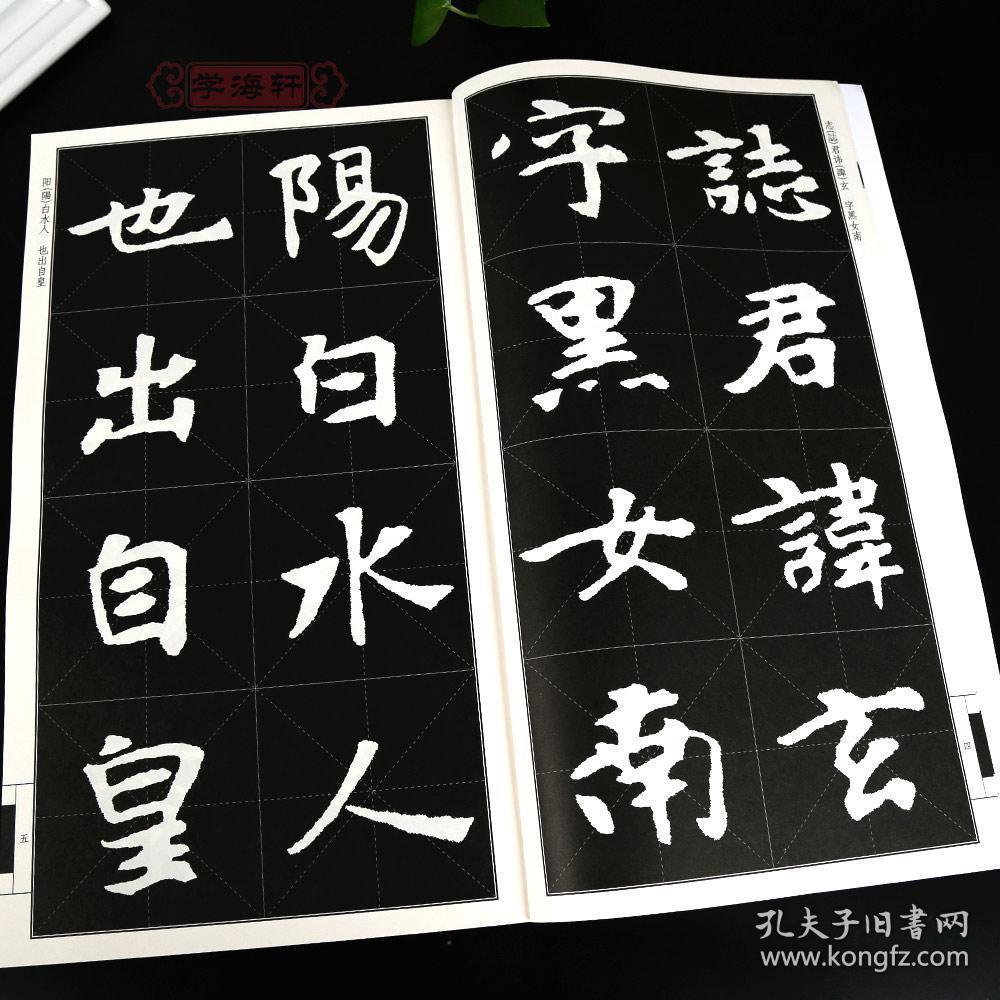 学海轩
志(誌)君讳(諱)玄 字黑女南
誌君諱玄
字黑女南
四
阳(陽)白水人 也出自皇
陽白水人
也出自皇
五
孔夫子旧书网
www.kongfz.com